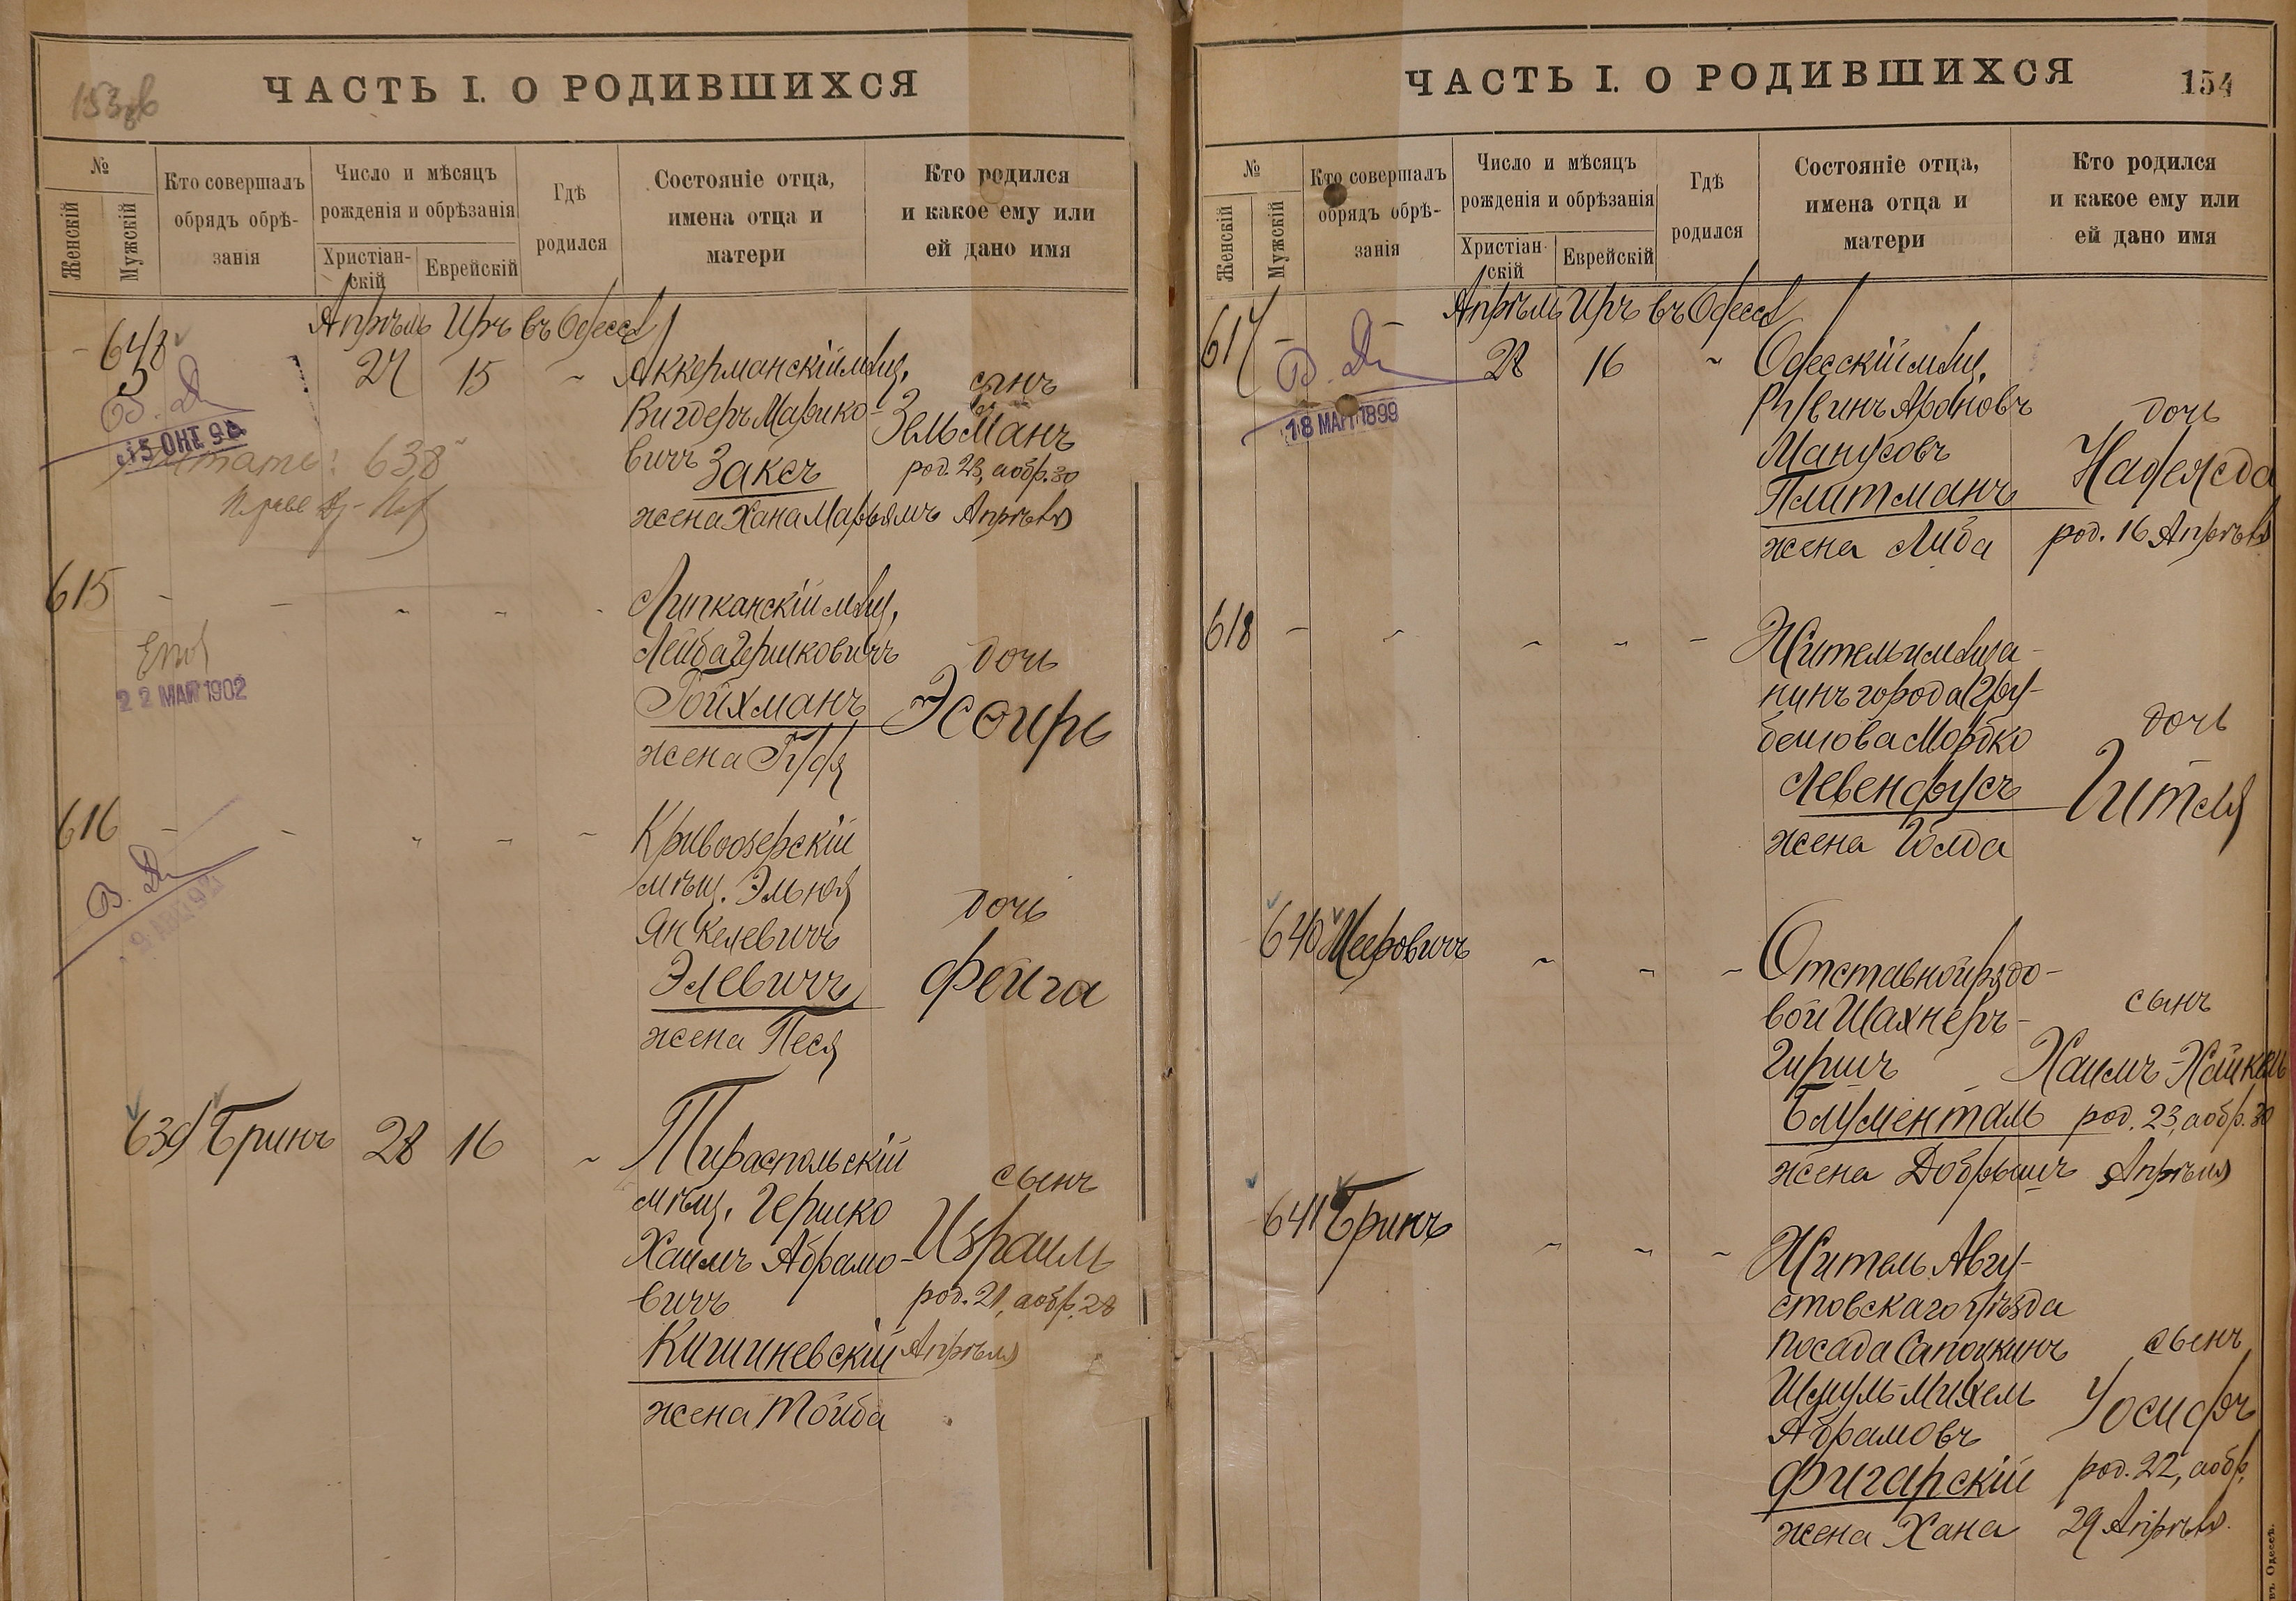 ЧАСТЬ I. О РОДИВШИХСЯ
№
Женскій
Мужскій
Кто совершалъ
обрядъ обрѣ-
занія
Число и мѣсяцъ
рожденія и обрѣзанія
Христіан-
скій
Еврейскій
Гдѣ
родился
Состояніе отца,
имена отца и
матери
Кто родился
и какое ему или
ей дано имя
Апрѣль Иръ въ Одессѣ
27 15
Аккерманскій мѣщ.
Вигдеръ Марико-
вичъ Заксъ
жена Хана Марьямъ
сынъ
Зельманъ
род. 23, а обр. 30
Апрѣля
15 ОКТ
читать: 638
615
22 МАР 1902
Липканскій мѣщ.
Лейба Гершковичъ
Ройхманъ
жена Руфя
дочь
Эсѳирь
616
В.
Кривоозерскій
мѣщ. Эльюя
Янкелевичъ
Элевичъ
жена Песя
дочь
Фейга
639 Бринъ 28 16
Тираспольскій
мѣщ. Гершко
Хаимъ Абрамо-
вичъ
Кишиневскій
жена Тойба
сынъ
Израиль
род. 21, а обр. 28
Апрѣля
ЧАСТЬ I. О РОДИВШИХСЯ
154
№
Женскій
Мужскій
Кто совершалъ
обрядъ обрѣ-
занія
Число и мѣсяцъ
рожденія и обрѣзанія
Христіан-
скій
Еврейскій
Гдѣ
родился
Состояніе отца,
имена отца и
матери
Кто родился
и какое ему или
ей дано имя
Апрѣль Иръ въ Одессѣ
617 28 16
18 МАР 1899
Одесскій мѣщ.
Рувинъ Ароновъ
Манусовъ
Плитманъ
жена Либа
дочь
Надежда
род. 16 Апрѣля
618
Житель и мѣща-
нинъ города Гру-
бешова Мордко
Левенфусъ
жена Голда
дочь
Гитля
640 Мееровичъ
Отставной рядо-
вой Шахнеръ-
Гиршъ
Блументаль
жена Добрышъ
сынъ
Хаимъ-Хайкель
род. 23, а обр. 30
Апрѣля
641 Бринъ
Житель Авгу-
стовскаго уѣзда
посада Сапоцкинъ
Шмуль-Михель
Абрамовъ
Фигарскій
жена Хана
сынъ
Іосифъ
род. 22, а обр.
29 Апрѣля.
въ Одессѣ.